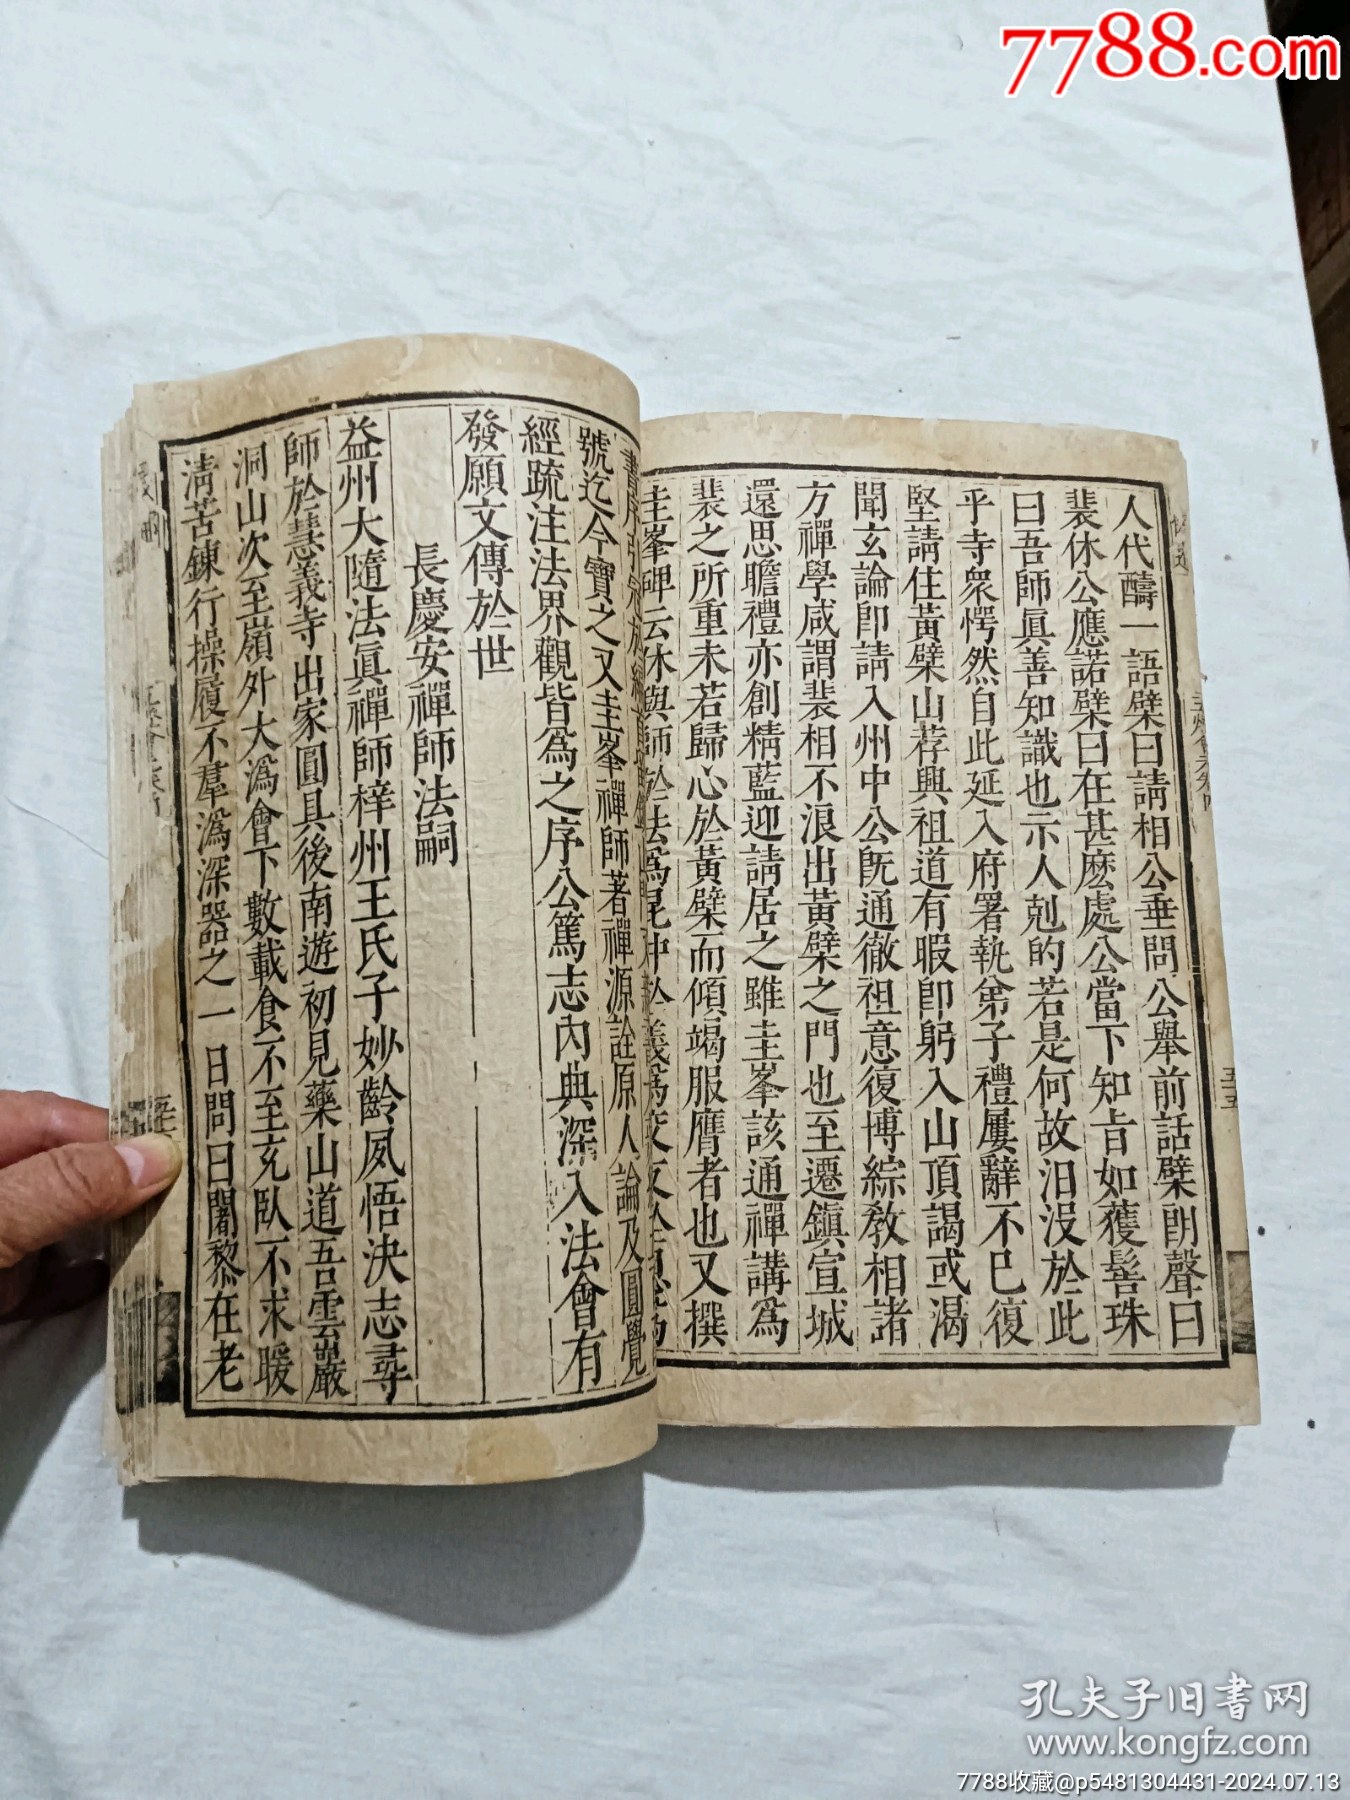 7788.com
人代醻一語檗曰請相公垂問公舉前話檗朗聲曰
裴休公應諾檗曰在甚麽處公當下知旨如獲髻珠
曰吾師眞善知識也示人剋的若是何故汨沒於此
乎寺衆愕然自此延入府署執弟子禮屢辭不巳復
堅請住黃檗山荐興祖道有暇卽躬入山頂謁或渴
聞玄論卽請入州中公旣通徹祖意復博綜敎相諸
方禪學咸謂裴相不浪出黃檗之門也至遷鎭宣城
還思瞻禮亦創精藍迎請居之雖圭峯該通禪講爲
裴之所重未若歸心於黃檗而傾竭服膺者也又撰
圭峯碑云休與師於法爲昆仲於義爲交
號迄今寶之又圭峯禪師著禪源詮原人論及圓覺
經疏注法界觀皆爲之序公篤志內典深入法會有
發願文傳於世
長慶安禪師法嗣
益州大隨法眞禪師梓州王氏子妙齡夙悟決志尋
師於慧義寺出家圓具後南遊初見藥山道吾雲巖
洞山次至嶺外大潙會下數載食不至充臥不求暖
淸苦鍊行操履不羣潙深器之一日問曰闍黎在老
孔夫子旧書网
www.kongfz.com
7788收藏@p5481304431-2024.07.13